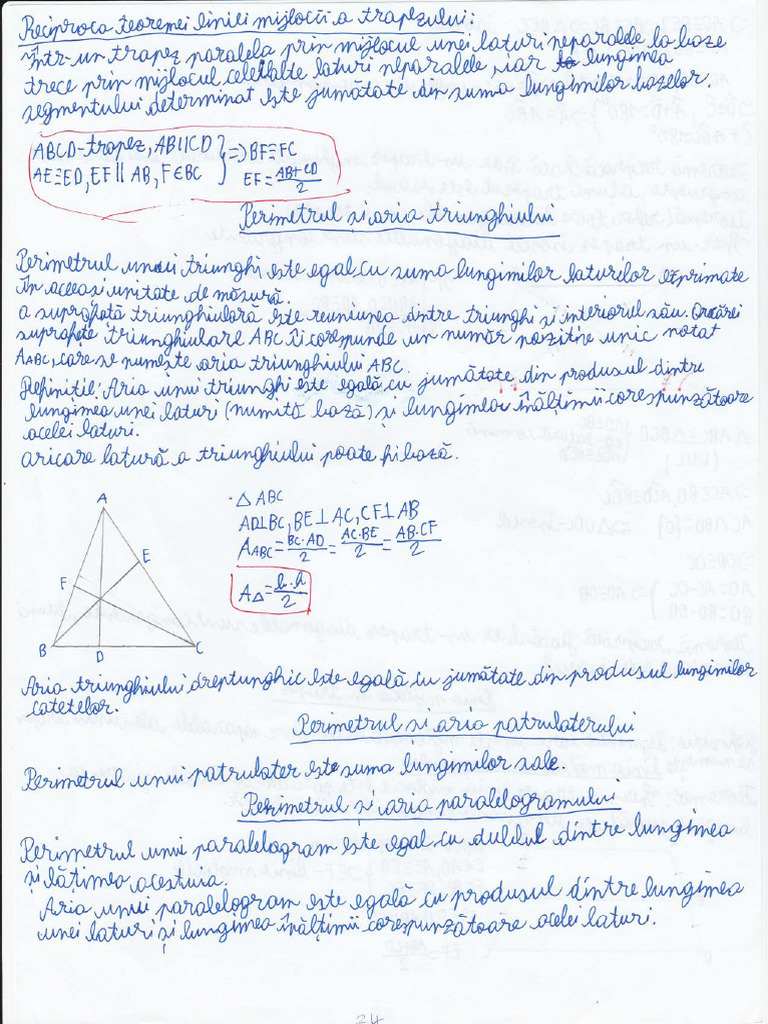 Reciproca teoremei liniei mijlocii a trapezului:
Într-un trapez paralela prin mijlocul unei laturi neparalele la baze
trece prin mijlocul celeilalte laturi neparalele, iar lungimea
segmentului determinat este jumătate din suma lungimilor bazelor.
ABCD-trapez, AB||CD } => BF≡FC
AE≡ED, EF||AB, F∈BC } EF=(AB+CD)/2
Perimetrul și aria triunghiului
Perimetrul unui triunghi este egal cu suma lungimilor laturilor exprimate
în aceeași unitate de măsură.
O suprafață triunghiulară este reuniunea dintre triunghi și interiorul său. Oricărei
suprafețe triunghiulare ABC îi corespunde un număr pozitiv unic notat
A_ABC, care se numește aria triunghiului ABC.
Definiție: Aria unui triunghi este egală cu jumătate din produsul dintre
lungimea unei laturi (numită bază) și lungimea înălțimii corespunzătoare
acelei laturi.
Oricare latură a triunghiului poate fi bază.
A
E
F
B
D
C
△ABC
AD⊥BC, BE⊥AC, CF⊥AB
A_ABC=BC·AD/2=AC·BE/2=AB·CF/2
A△=b·h/2
Aria triunghiului dreptunghic este egală cu jumătate din produsul lungimilor
catetelor.
Perimetrul și aria patrulaterului
Perimetrul unui patrulater este suma lungimilor sale.
Perimetrul și aria paralelogramului
Perimetrul unui paralelogram este egal cu dublul dintre lungimea
și lățimea acestuia.
Aria unui paralelogram este egală cu produsul dintre lungimea
unei laturi și lungimea înălțimii corespunzătoare acelei laturi.
24